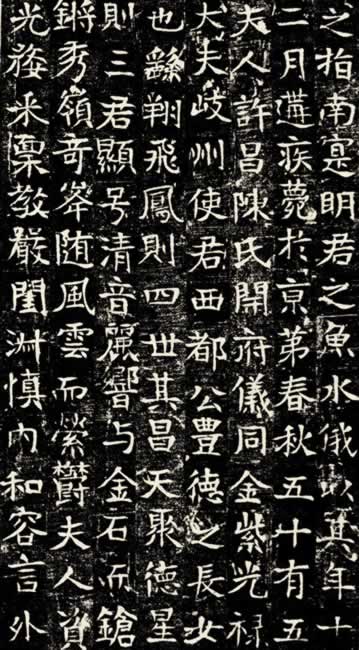 之指南寔明君之魚水俄以其年十
二月遘疾薨於京第春秋五十有五
夫人許昌陳氏開府儀同金紫光禄
大夫歧州使君西都公豊德之長女
也繇翔飛鳳則四世其昌天聚德星
則三君顯号清音麗響与金石而鎗
鏘秀嶺奇峯随風雲而縈欝夫人資
光婺采稟教嚴閨淑慎内和容言外